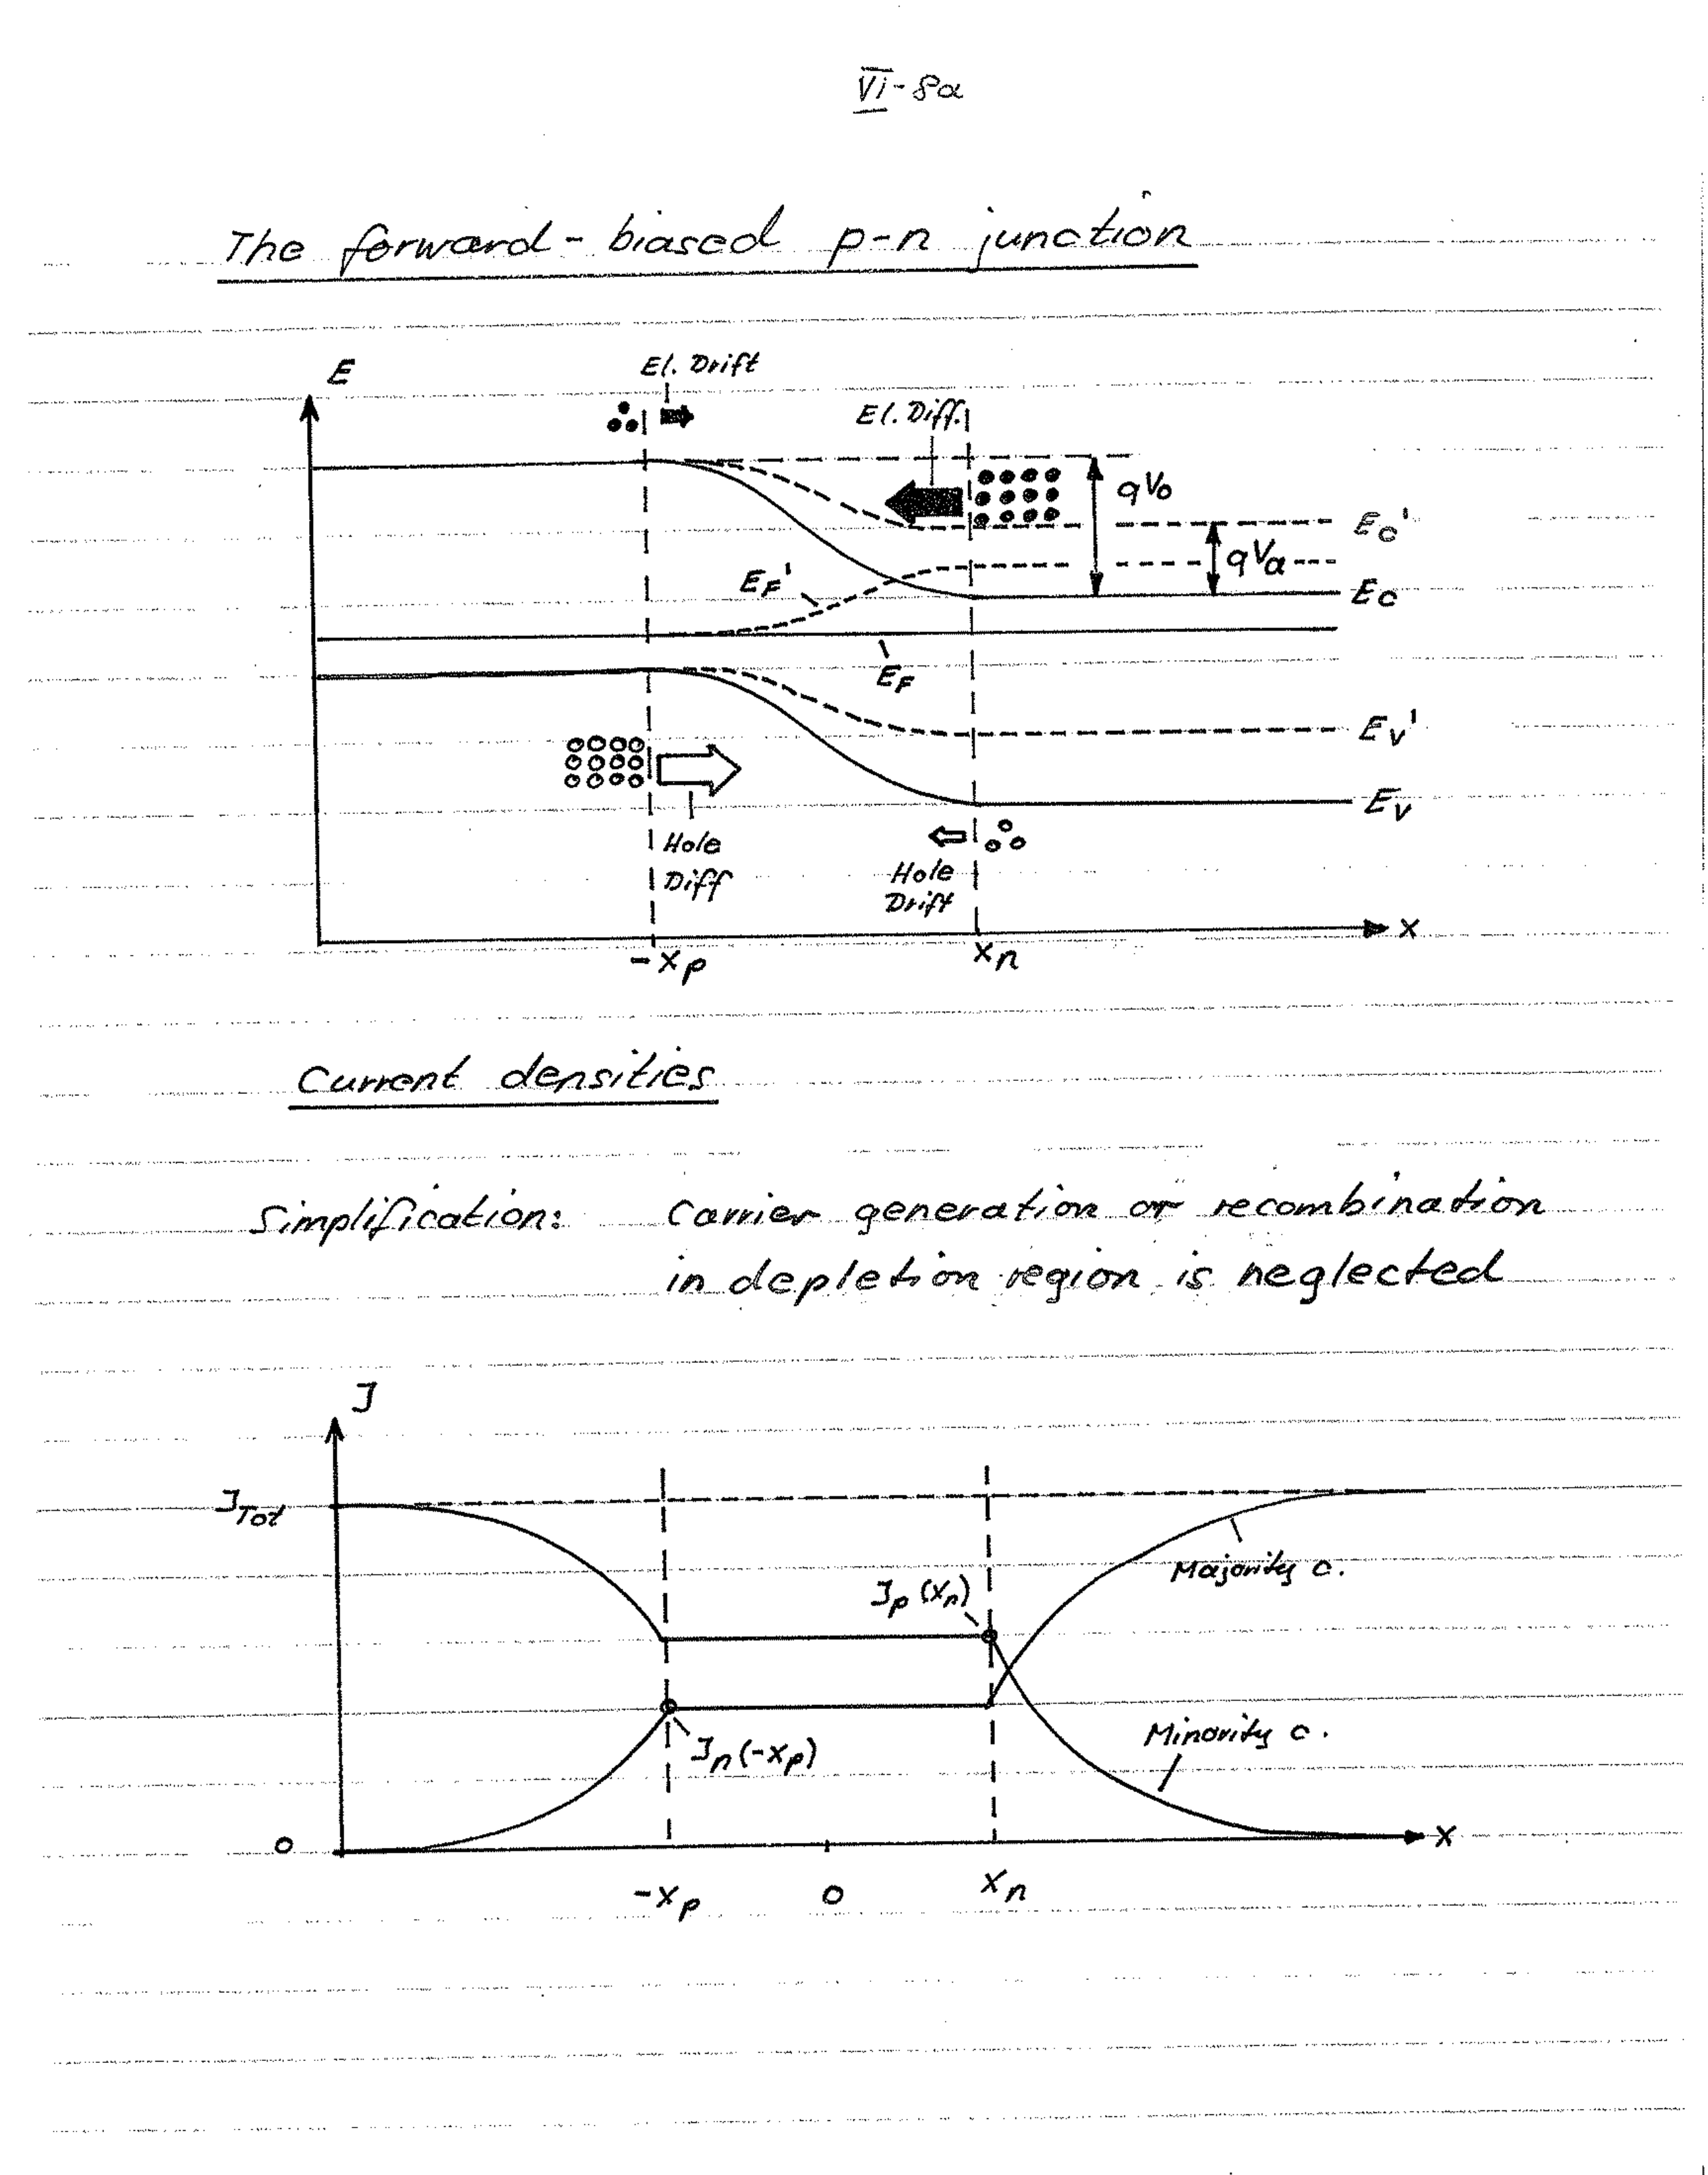 VI-8a
The forward-biased p-n junction
E
El. Drift
El. Diff.
qVo
Ec'
qVa
EF'
Ec
EF
Ev'
Ev
Hole
Diff
Hole
Drift
x
-xp
xn
Current densities
Simplification: Carrier generation or recombination
in depletion region is neglected
J
JTot
Majority c.
Jp(xn)
Minority c.
Jn(-xp)
0
x
-xp
0
xn